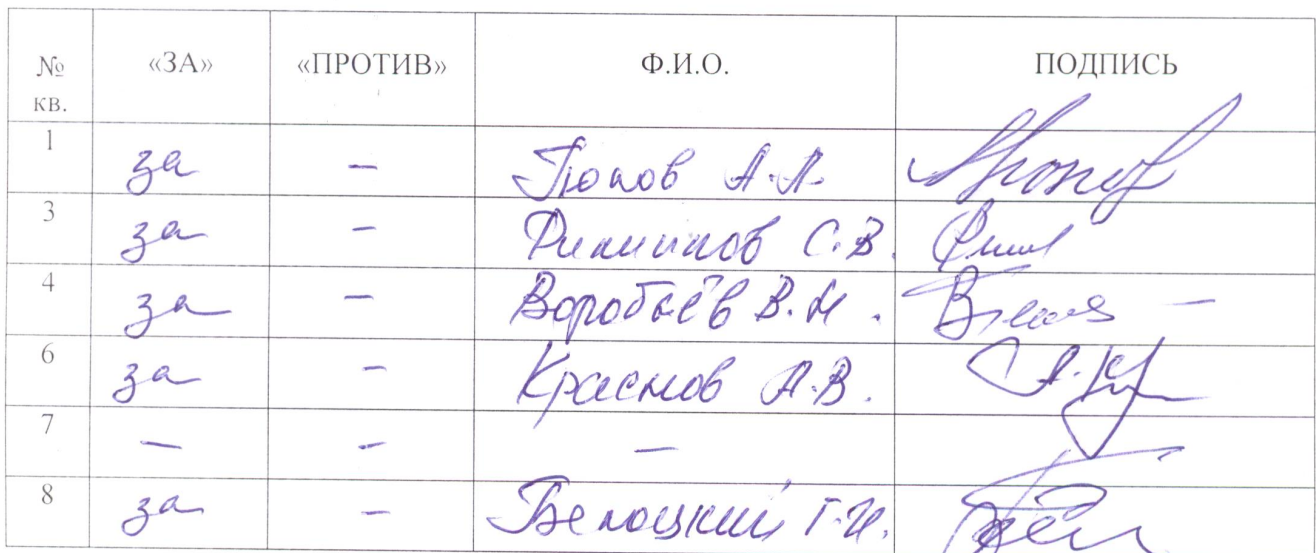 № кв. «ЗА» «ПРОТИВ» Ф.И.О. ПОДПИСЬ
1 за –
3 за – С.В.
4 за – Воробьёв В.Н.
6 за – Краснов А.В.
7 – – –
8 за – Белоцкий Г.И.